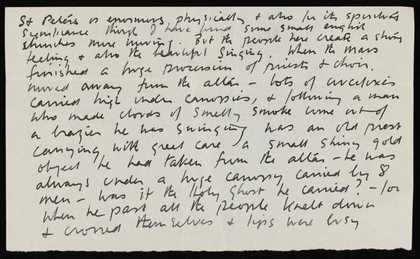 St Peters is enormous, physically & also for its spiritual
significance though I have found some small english
churches more moving. But the people here create a living
feeling & also the beautiful singing. When the mass
finished a huge procession of priests & choir,
moved away from the altar – lots of crucifixes
carried high under canopies, & following a man
who made clouds of smelly smoke come out of
a brazier he was swinging was an old priest
carrying with great care a small shiny gold
object he had taken from the altar – he was
always under a huge canopy carried by 8
men – was it the Holy Ghost he carried? – for
when he past all the people knelt down
& crossed themselves & lips were busy